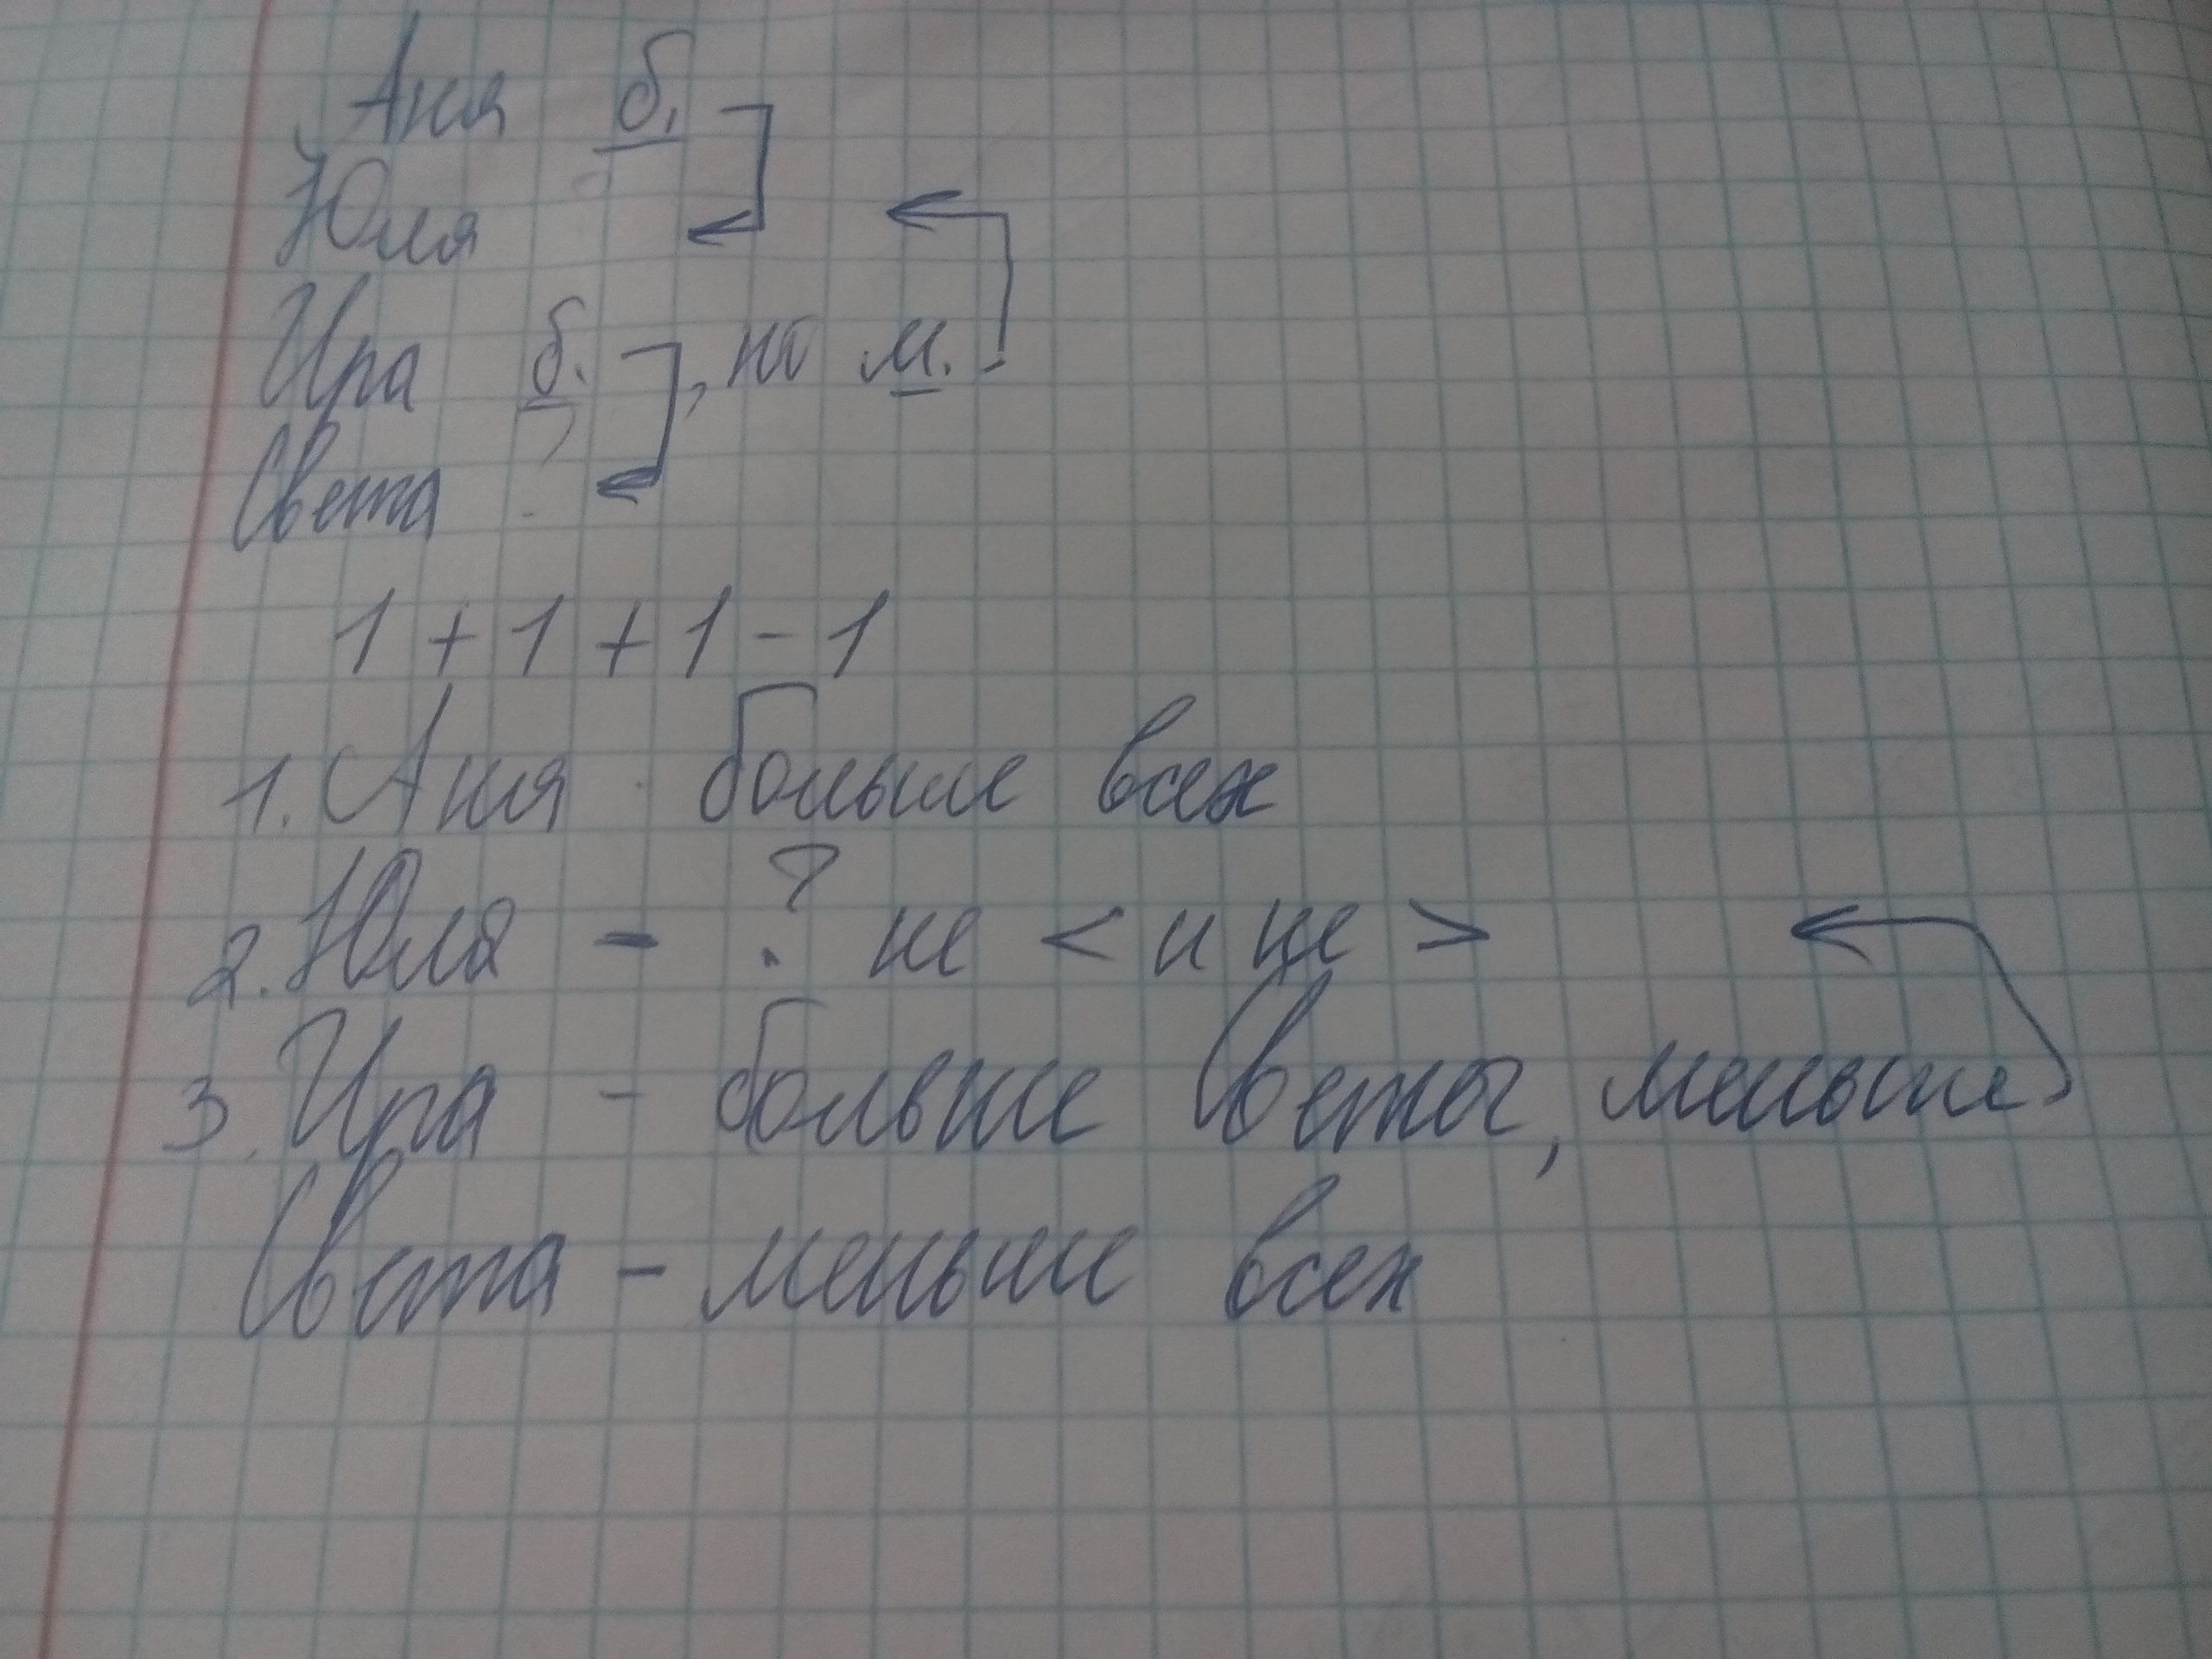 Аня б.
Юля
Ира б. , но м.
Света
1 + 1 + 1 - 1
1. Аня больше всех
2. Юля - ? не < и не >
3. Ира - больше Светы, меньше
Света - меньше всех